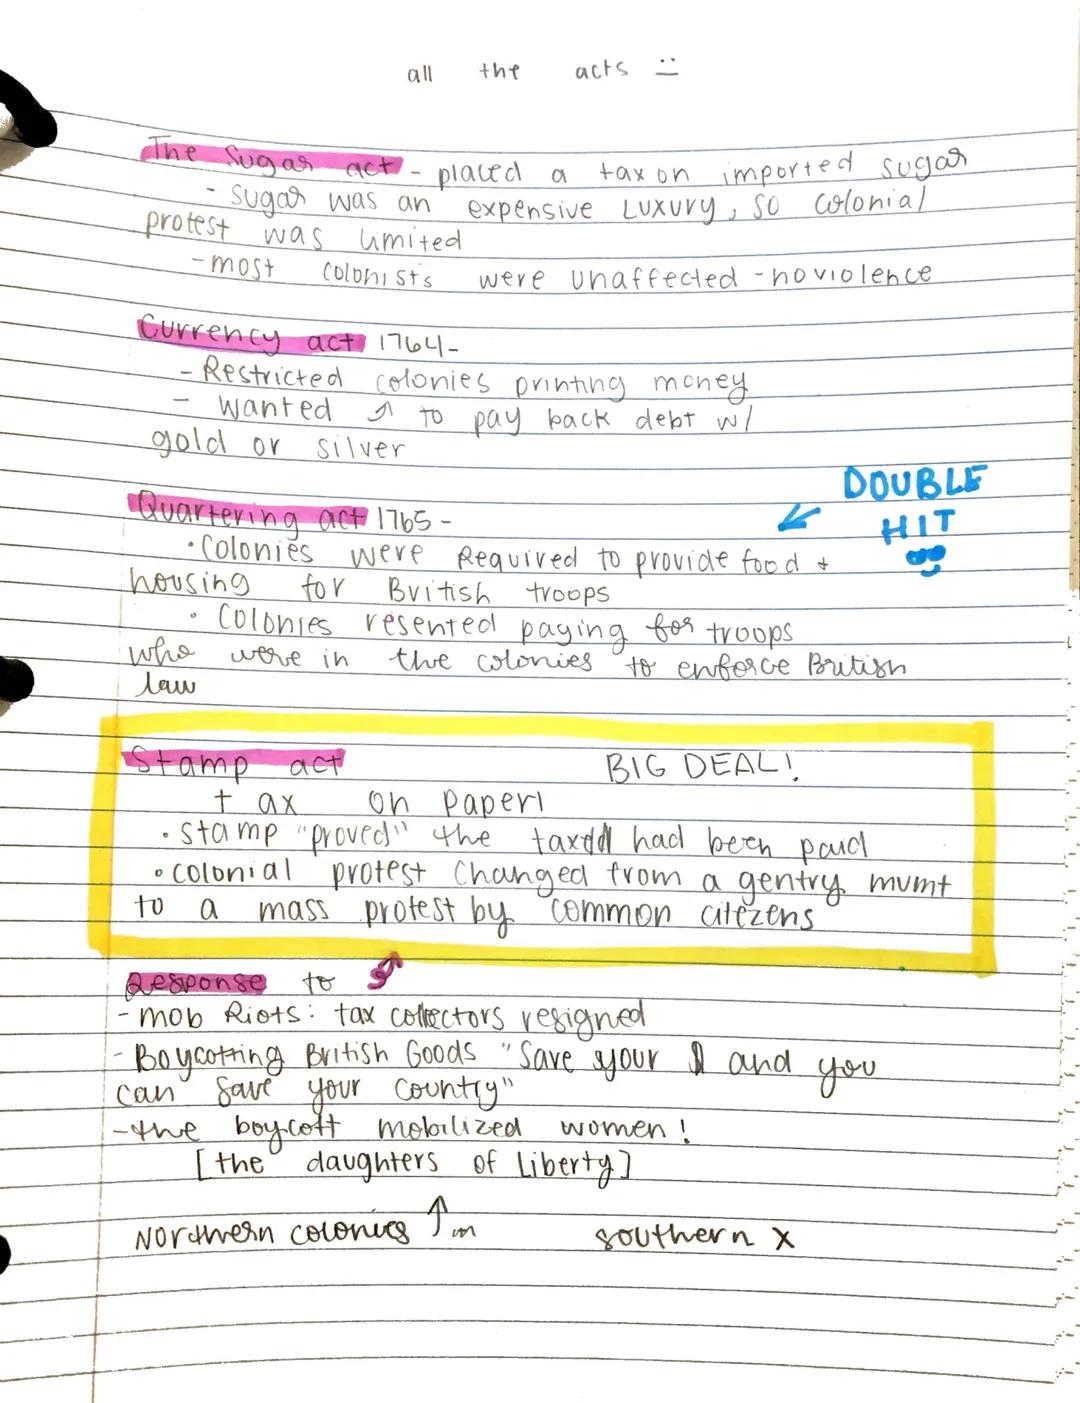 all the acts :)
The Sugar act - placed a tax on imported sugar
- sugar was an expensive Luxury, so colonial
protest was limited
- most colonists were unaffected - no violence
Currency act 1764-
- Restricted colonies printing money
- wanted ↗ to pay back debt w/
gold or silver
DOUBLE
HIT
Quartering act 1765 -
• Colonies were Required to provide food +
housing for British troops
• Colonies resented paying for troops
who were in the colonies to enforce British
law
Stamp act BIG DEAL!
tax on paper!
• stamp "proved" the tax had been paid
• colonial protest changed from a gentry mvmt
to a mass protest by common citezens
Response to ↗
- mob Riots: tax collectors resigned
- Boycotting British Goods "Save your and you
can save your country"
- the boycott mobilized women!
[the daughters of Liberty]
Northern colonies ↑ in southern x